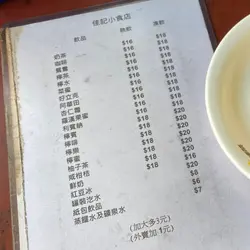 佳記小食店
飲品 熱飲 凍飲
奶茶 $16 $18
咖啡 $16 $18
鴛鴦 $16 $18
檸茶 $16 $18
檸水 $16 $18
菜蜜 $16 $18
好立克 $16
阿華田 $16
杏仁霜
羅漢果蜜
利賓納 $18 $20
檸賓 $18 $20
檸啡 $18 $20
檸樂 $18 $20
檸蜜 $18 $20
柚子茶 $18 $20
咸柑桔
鮮奶
紅豆冰 $20
罐裝汔水 $8
紙包飲品 $6
蒸餾水及礦泉水 $7
(加大多3元)
(外賣加1元)